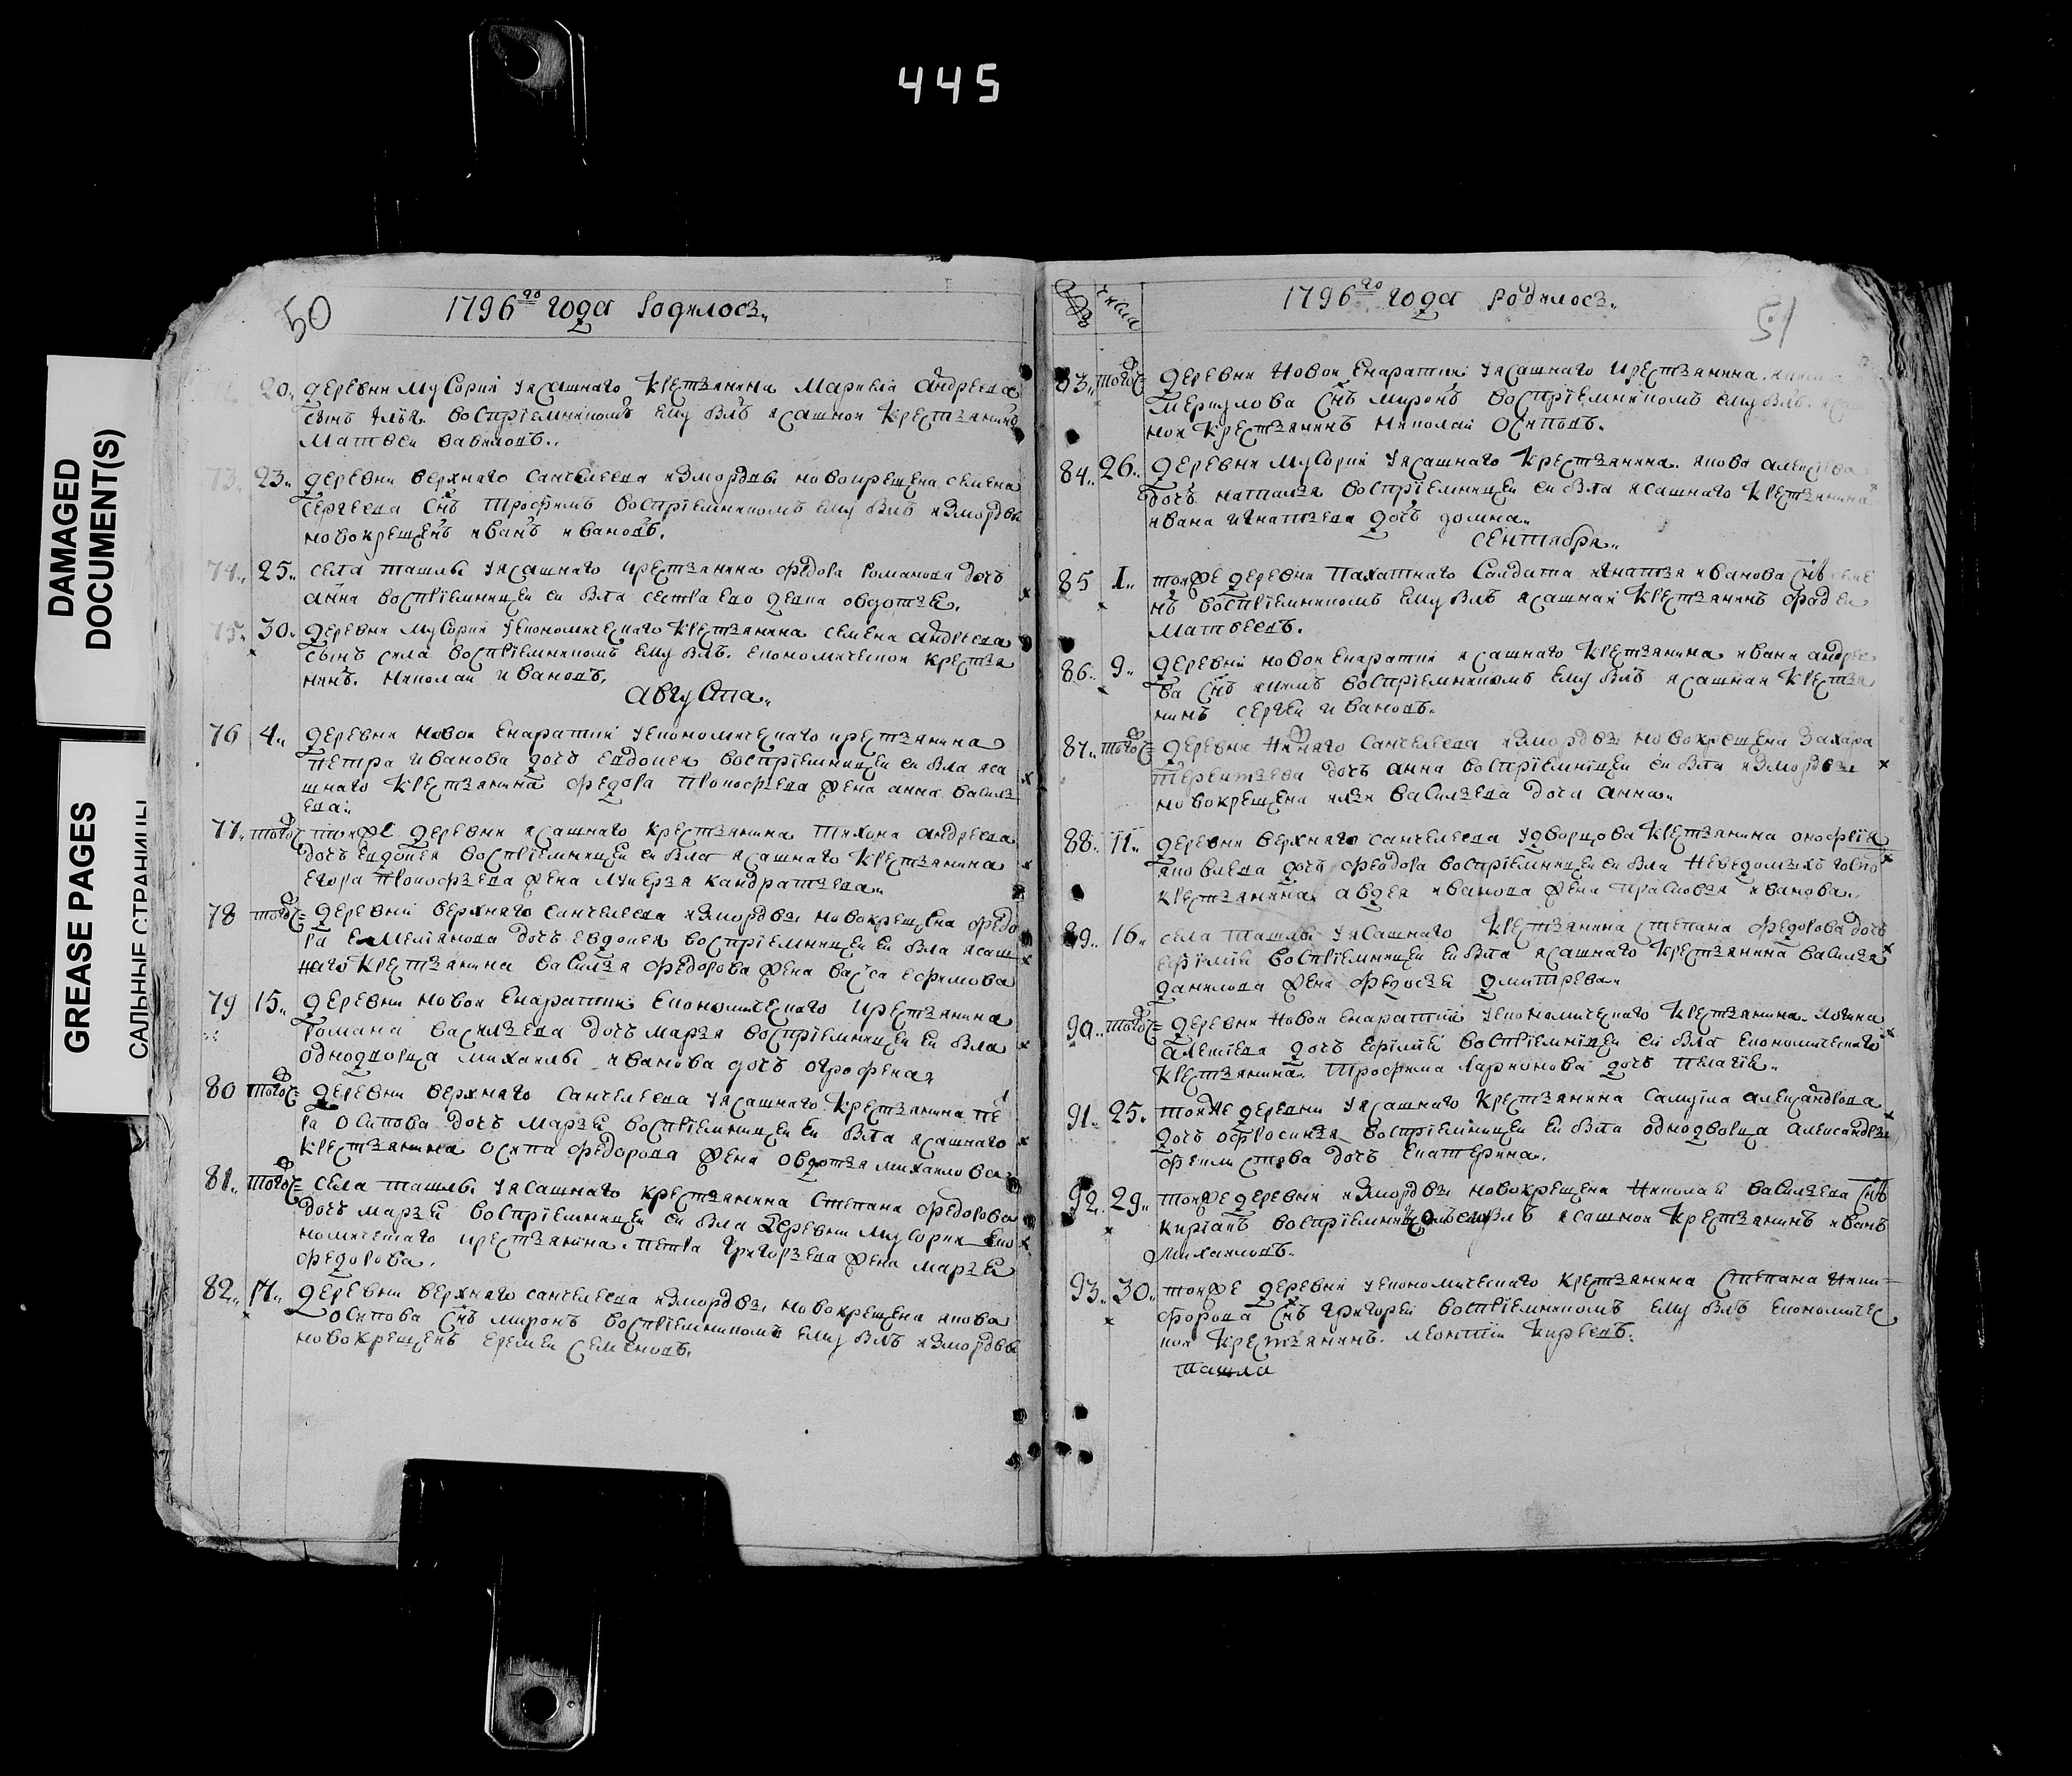 445
DAMAGED
DOCUMENT(S)
GREASE PAGES
САЛЬНЫЕ СТРАНИЦЫ
50
1796го года Родилось
72 20 деревни Мусорки уясашнаго крестьянина Маркела Андреева
сынъ Илья воспрїемникомъ ему былъ ясашной крестьянинъ
Матвеи Вавиловъ
73 23 деревни верхнего Санчелеева измордвы новокрещена семена
сергеева снъ Трофимъ воспрїемникомъ ему былъ измордвы
новокрещенъ иванъ ивановъ
74 25 села ташлы уясашнаго крестьянина федора романова дочь
анна воспрїемницеи еи была сестра ево девка овдотья
75 30 деревни мусорки уекономическаго крестьянина семена андреева
сынъ сила воспрїемникомъ ему былъ економическои крестья
нинъ Николаи ивановъ
августа
76 4 деревни новои Екаратки уекономическаго крестьянина
петра иванова дочь евдокея воспрїемницеи еи была яса
шнаго крестьянина федора прокофьева жена анна василь
ева
77 тогож тоиже деревни ясашнаго крестьянина Тихона андреева
дочь евдокея воспрїемницеи еи была ясашнаго крестьянина
егора прокофьева жена лукерья кандратьева
78 тогож деревни верхняго санчелеева измордвы новокрещена федо
ра Емелїянова дочь евдокея воспрїемницеи еи была ясаш
наго крестьянина василья федорова жена васса ефимова
79 15 деревни новои Екаратки економическаго крестьянина
романа васильева дочь марья воспрїемницеи еи была
однодворца михаилы иванова дочь огрофена
80 тогож деревни верхняго санчелеева уясашнаго крестьянина пе
ра осипова дочь марья воспрїемницеи еи была ясашнаго
крестьянина осипа федорова жена овдотья михаилова
81 тогож села ташлы уясашнаго крестьянина степана федорова
дочь марья воспрїемницеи еи была деревни мусорки еко
номическаго крестьянина петра григорьева жена марья
федорова
82 17 деревни верхняго санчелеева измордвы новокрещена якова
осипова снъ миронъ воспрїемникомъ ему былъ измордвы
новокрещенъ еремеи семеновъ
51
числа
1796го года родилось
83 тогож деревни новои Екаратки уясашнаго крестьянина
меркулова снъ миронъ воспрїемникомъ ему былъ ясаш
нои крестьянинъ николаи осиповъ
84 26 деревни мусорки уясашнаго крестьянина якова алексеева
дочь наталья воспрїемницеи еи была ясашнаго крестьянина
ивана игнатьева дочь домна
сентября
85 1 тоиже деревни пахатнаго салдата игнатья иванова снъ семе
нъ воспрїемникомъ ему былъ ясашнаи крестьянинъ фадеи
матвеевъ
86 9 деревни новои екаратки ясашнаго крестьянина ивана андрее
ва снъ якимъ воспрїемникомъ ему былъ ясашнаи крестья
нинъ сергеи ивановъ
87 тогож деревни нижняго санчелеева измордвы новокрещена захара
терентьева дочь анна воспрїемницеи еи была измордвы
новокрещена ильи васильева дочь анна
88 11 деревни верхняго санчелеева удворцова крестьянина онофрїя
яковлева дочь феодора воспрїемницеи еи была неведомыхъ госпо
крестьянина авдея иванова жена прасковья иванова
89 16 села ташлы уясашнаго крестьянина степана федорова дочь
ефїмїя воспрїемницеи еи была ясашнаго крестьянина василья
данилова жена федосья дмитрева
90 тогож деревни новои екаратки уекономическаго крестьянина логина
алексеева дочь ефїмїя воспрїемницеи еи была економическаго
крестьянина трофима ларионова дочь пелагїя
91 25 тоиже деревни уясашнаго крестьянина самуила александрова
дочь офросинья воспрїемницеи еи была однодворца александры
феклистова дочь екатерина
92 29 тоиже деревни измордвы новокрещена николая васильева снъ
кирїанъ воспрїемникомъ ему былъ ясашнои крестьянинъ иванъ
михаиловъ
93 30 тоиже деревни уекономическаго крестьянина степана ники
форова снъ григореи воспрїемникомъ ему былъ економичес
кои крестьянинъ леонтїи киреевъ
ташла